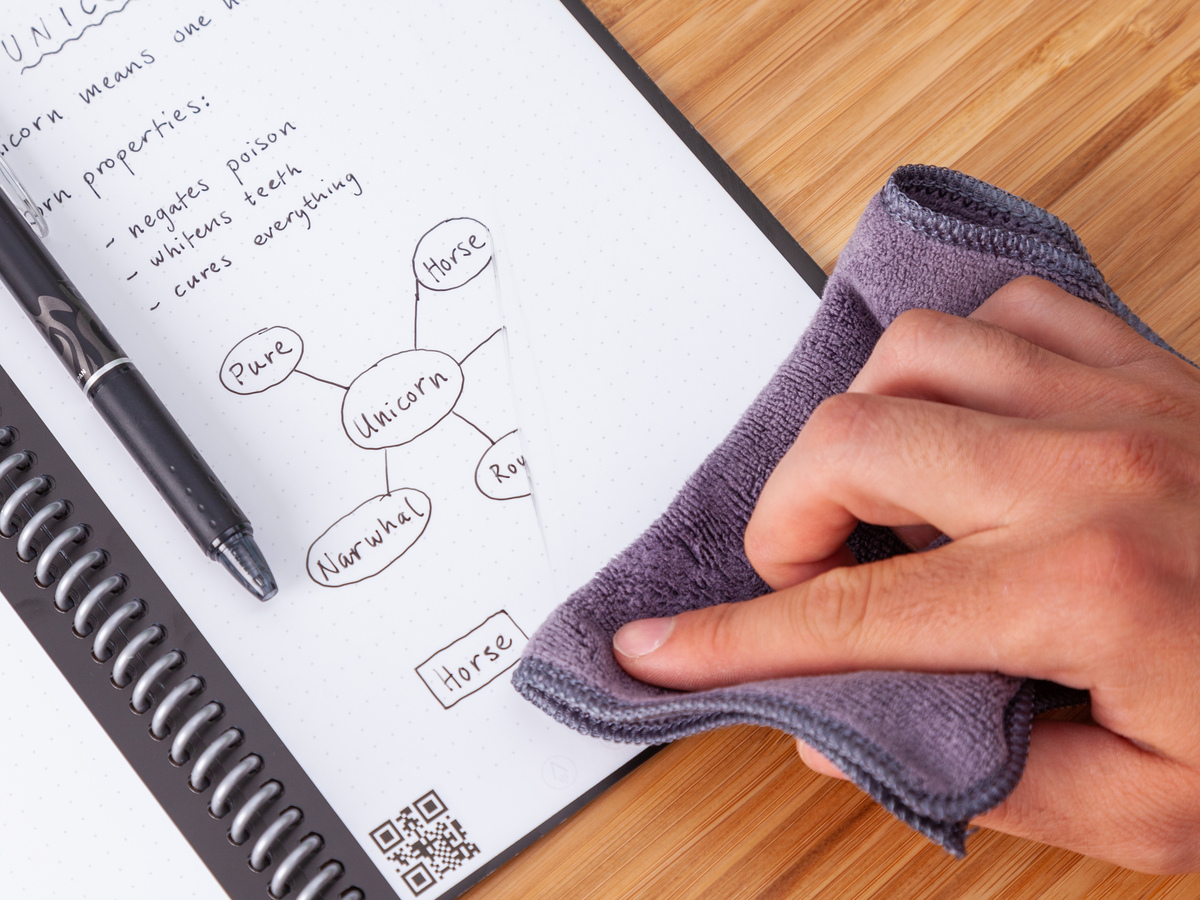 UNIC
icorn means one h
orn properties:
- negates poison
- whitens teeth
- cures everything
Horse
Pure
Unicorn
Rou
Narwhal
Horse